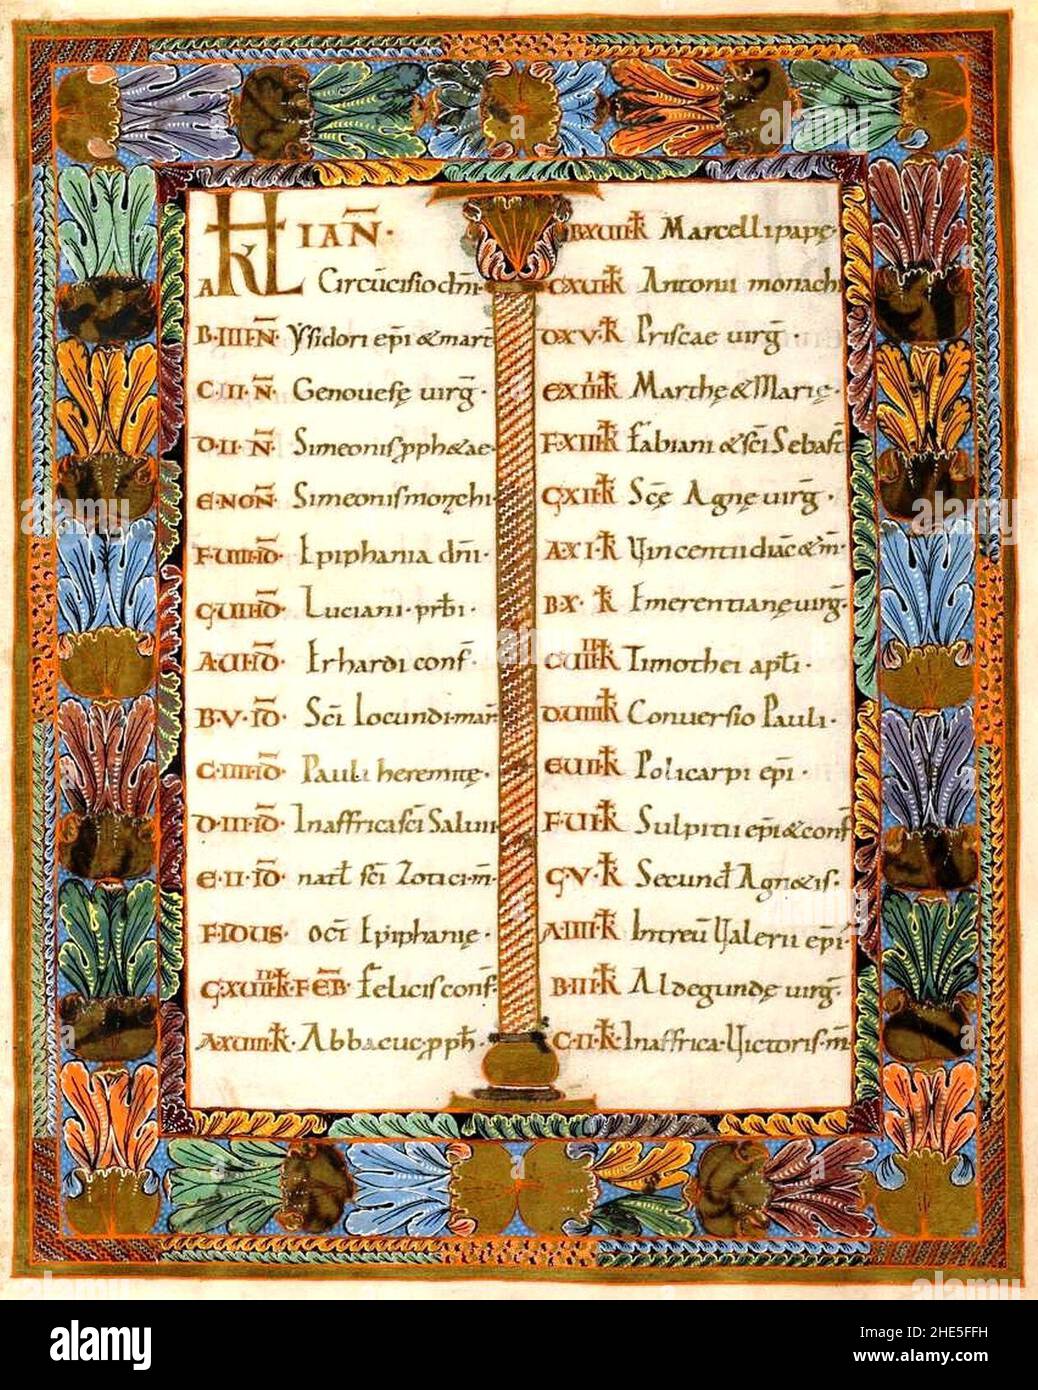 KL IAN̄·
A Circūcisio dn̄i·
B·IIII·N̄· Ysidori ep̄i & mart̄
C·III·N̄· Genouefę uirḡ·
D·II·N̄· Simeonis p̱ph&ae·
E·NON̄· Simeonis monchi
F·VIII·ID̄· Epiphania dn̄i·
G·VII·ID̄· Luciani·prb̄i·
A·VI·ID̄· Erhardi conf̄·
B·V·ID̄· Sc̄i Iocundi·mar̄
C·IIII·ID̄· Pauli heremitę·
D·III·ID̄· In affrica sc̄i Saluii
E·II·ID̄· nat̄l sc̄i Zotici·m̄·
F·IDUS· oct̄ Epiphanię·
G·XVIIII·k̄·FEB̄· Felicis conf̄·
A·XVIII·k̄· Abbacuc·p̱ph̄·
B·XVII·k̄ Marcelli papę·
C·XVI·k̄ Antonii monachi
D·XV·k̄· Priscae uirḡ·
E·XIIII·k̄ Marthę & Marię·
F·XIII·k̄ Fabiani & sc̄i Sebast̄
G·XII·k̄ Sc̄ę Agnę uirḡ·
A·XI·k̄ Vincentii diac̄ & m̄·
B·X·k̄ Emerentianę uirḡ·
C·VIIII·k̄ Timothei apt̄i·
D·VIII·k̄ Conuersio Pauli·
E·VII·k̄ Policarpi ep̄i·
F·VI·k̄ Sulpitii ep̄i & conf̄
G·V·k̄ Secund̄ Agn&is·
A·IIII·k̄ In treū Valerii ep̄i·
B·III·k̄ Aldegundę uirḡ·
C·II·k̄· In affrica·Victoris·m̄
alamy
Image ID: 2HE5FFH
www.alamy.com